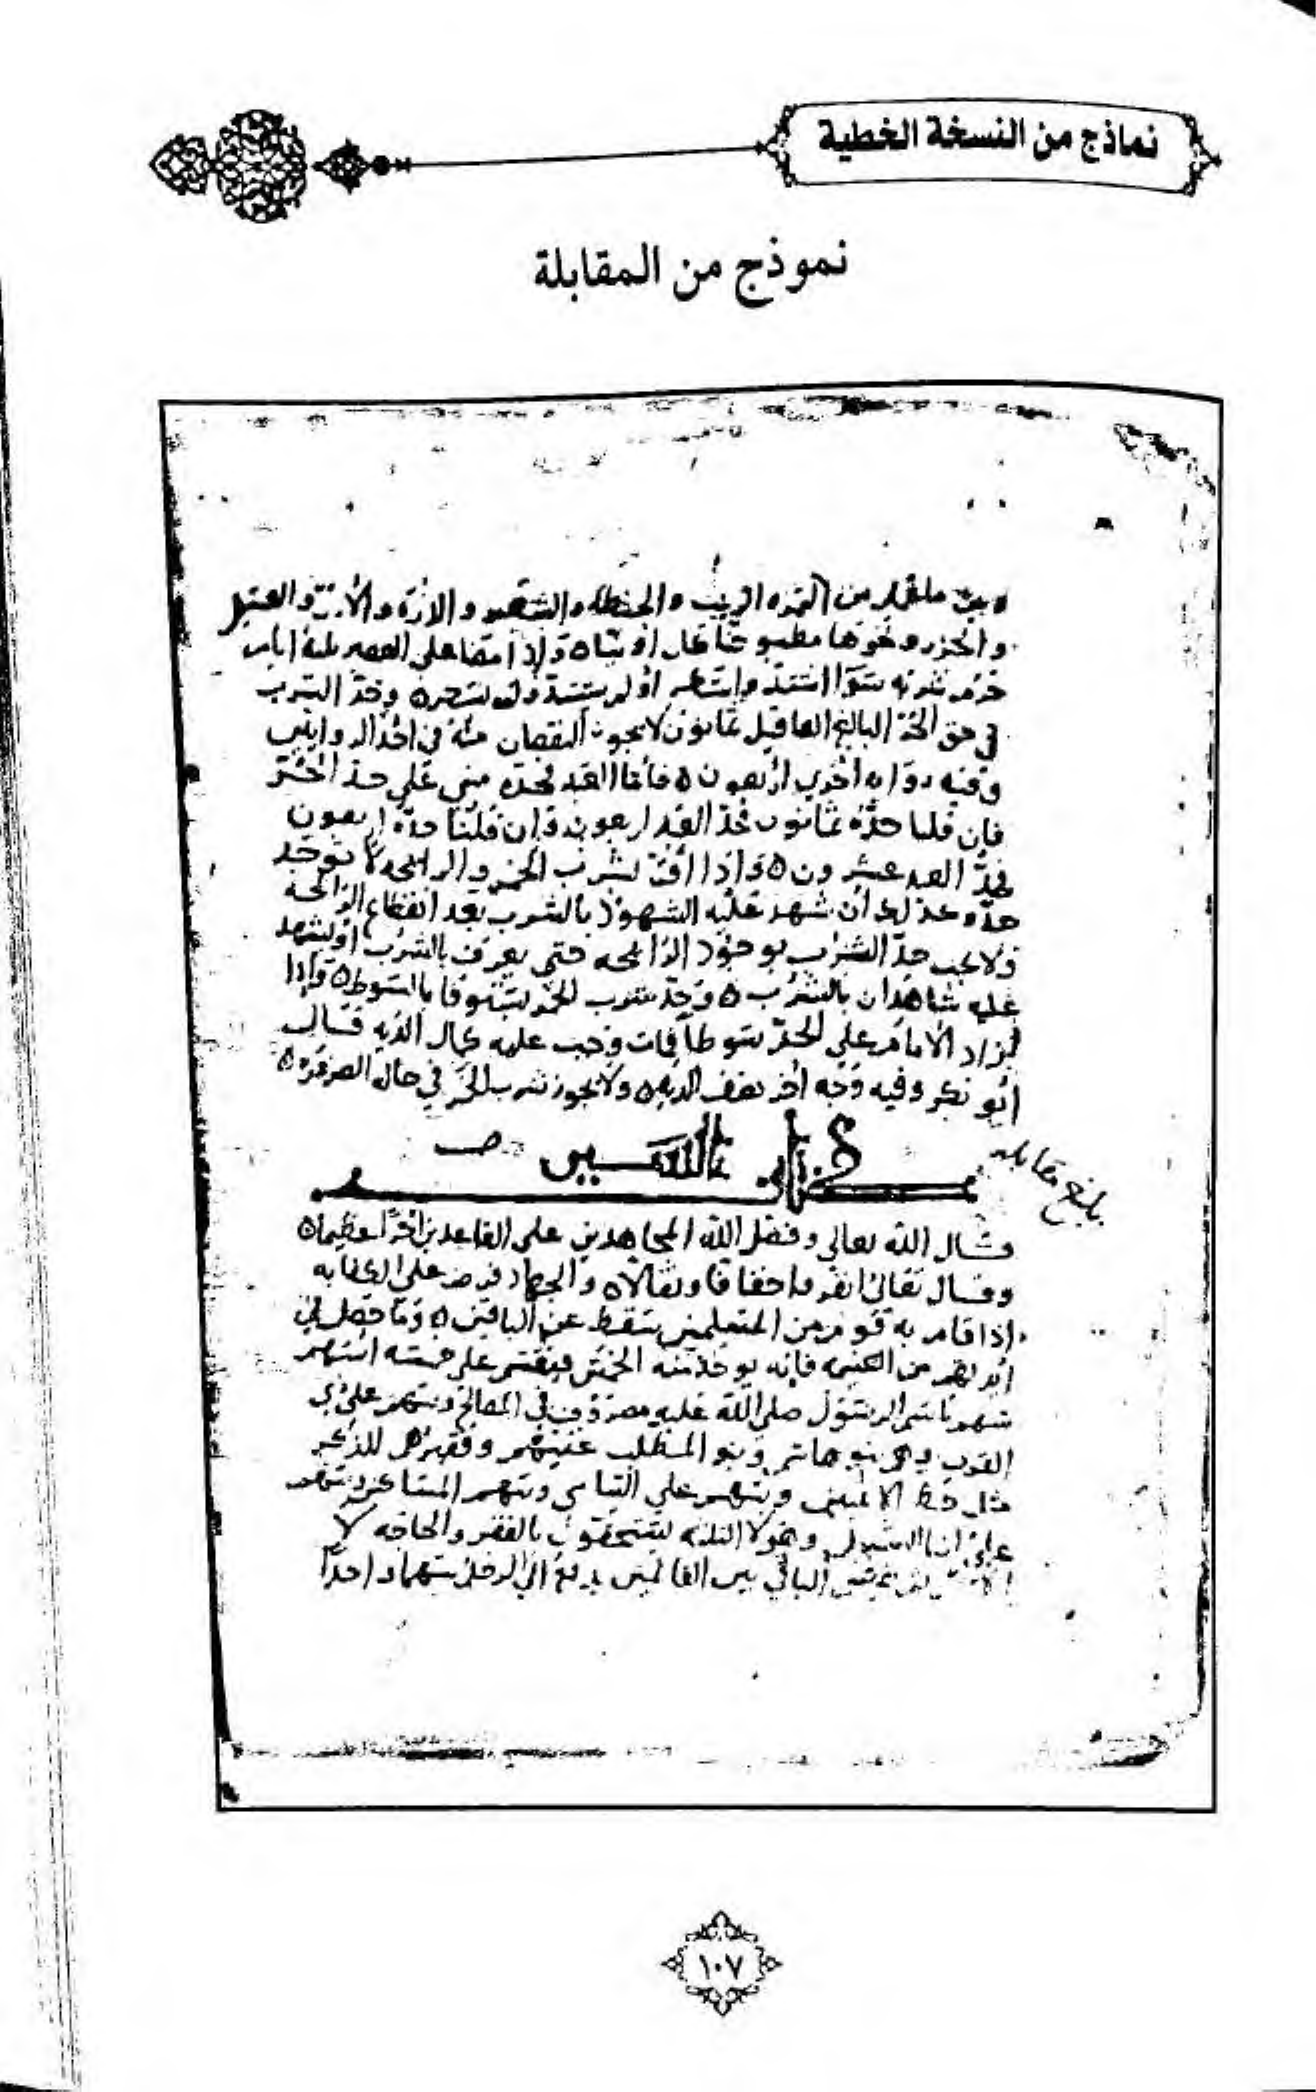 نماذج من النسخة الخطية
نموذج من المقابلة
من التمر والزبيب والحنطة والشعير والارز والعسل
والجزر ونحوها مطبوخا كان او نيا واذا مضا على العصير ثلثة ايام
حرم شربه سوا اشتد او لم يشتد وحد الشرب
في حق الحر البالغ العاقل ثمانون لا يجوز النقصان منه في احدى الروايتين
وفيه رواية اخرى اربعون فاما العبد فحده مبني على حد الحر
فان قلنا حده ثمانون فحد العبد اربعون وان قلنا حده اربعون
فحد العبد عشرون واذا اقر بشرب الخمر والرائحة لا توجد
حد وكذلك ان شهد عليه الشهود بالشرب بعد انقطاع الرائحة
ولا يجب حد الشراب بوجود الرائحة حتى يعرف بالشرب او يشهد
عليه شاهدان بالشرب وحد شرب الخمر بالسوط واذا
زاد الامام على الحد سوطا فمات وجب عليه كمال الدية قال
ابو بكر وفيه وجه اخر نصف الدية ولا يجوز شرب الخمر في حال الضرورة
كتاب السير
بلغ مقابلة
قال الله تعالى وفضل الله المجاهدين على القاعدين اجرا عظيما
وقال تعالى انفروا خفافا وثقالا والجهاد فرض على الكفاية
اذا قام به قوم من المسلمين سقط عن الباقين وما حصل في
ايديهم من الغنيمة فانه يوخذ منه الخمس فيقسم على خمسة اسهم
سهم باسم الرسول صلى الله عليه مصروف في المصالح وسهم على ذي
القربى وهم بنو هاشم وبنو المطلب غنيهم وفقيرهم للذكر
مثل حظ الانثيين وسهم على اليتامى وسهم المساكين وسهم
على ابنا السبيل وهولا الثلثة يستحقون بالفقر والحاجة لا
الباقي بين الغانمين يدفع الى الرجل سهما واحدا
١٠٧